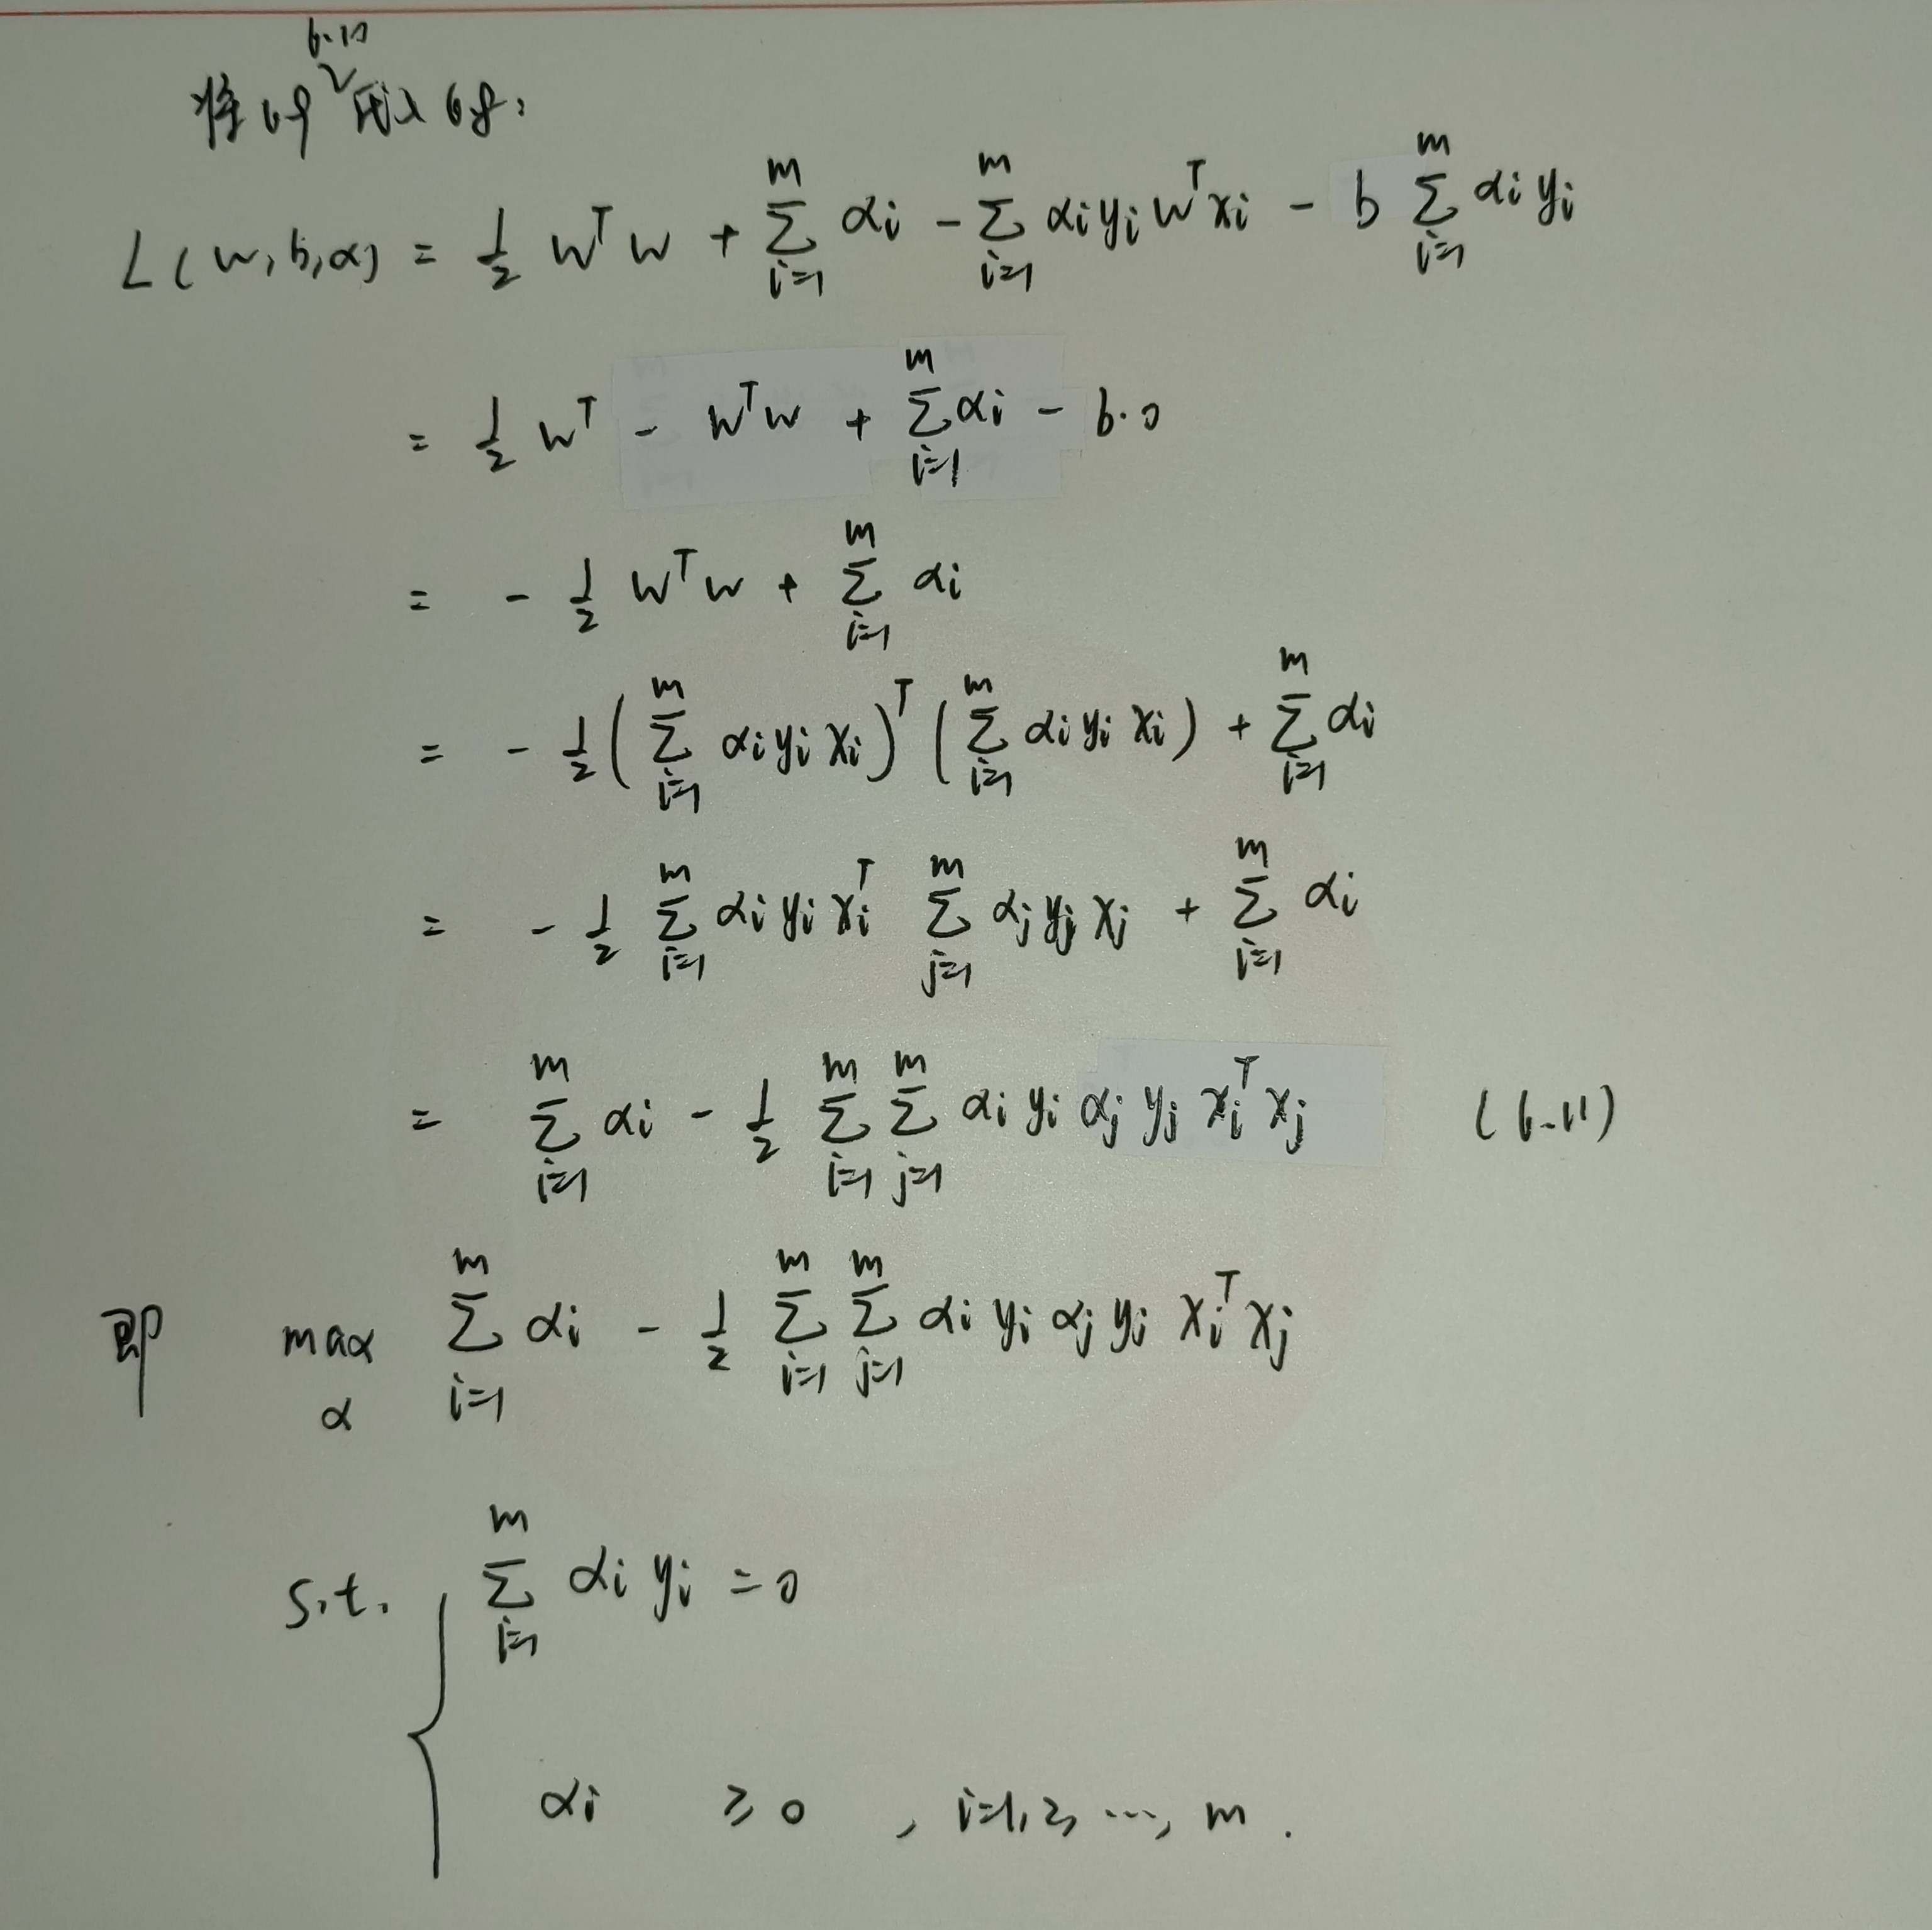 6.10
将 6.9 代入 6.8:
L(w,b,α) = 1/2 w^T w + Σ_{i=1}^{m} αi - Σ_{i=1}^{m} αi yi w^T xi - b Σ_{i=1}^{m} αi yi
= 1/2 w^T - w^T w + Σ_{i=1}^{m} αi - b·0
= - 1/2 w^T w + Σ_{i=1}^{m} αi
= - 1/2 ( Σ_{i=1}^{m} αi yi xi )^T ( Σ_{i=1}^{m} αi yi xi ) + Σ_{i=1}^{m} αi
= - 1/2 Σ_{i=1}^{m} αi yi xi^T Σ_{j=1}^{m} αj yj xj + Σ_{i=1}^{m} αi
= Σ_{i=1}^{m} αi - 1/2 Σ_{i=1}^{m} Σ_{j=1}^{m} αi yi αj yj xi^T xj (6.11)
即 max_α Σ_{i=1}^{m} αi - 1/2 Σ_{i=1}^{m} Σ_{j=1}^{m} αi yi αj yj xi^T xj
s.t. { Σ_{i=1}^{m} αi yi = 0
αi ≥ 0 , i=1,2, ..., m .